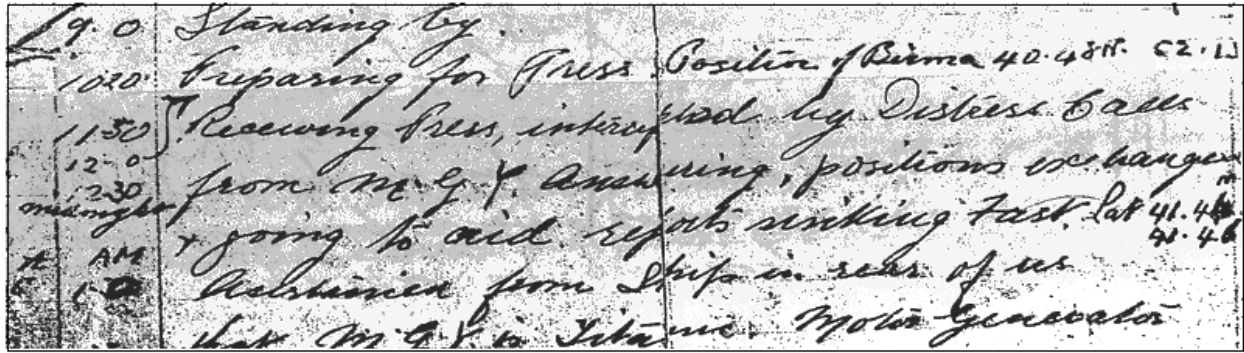 9. 0 Standing by.
1020 Preparing for Press. Position of Birma 40.48N. 52.13
1150 Receiving Press, intercepted by Distress Calls
12.0
1230 from M.G.Y. Answering, positions exchanged
midnight & going to aid. reports sinking fast. Lat 41.46
41.46
AM from Ship in rear of us
that M.G.Y is Titanic. Motor Generator